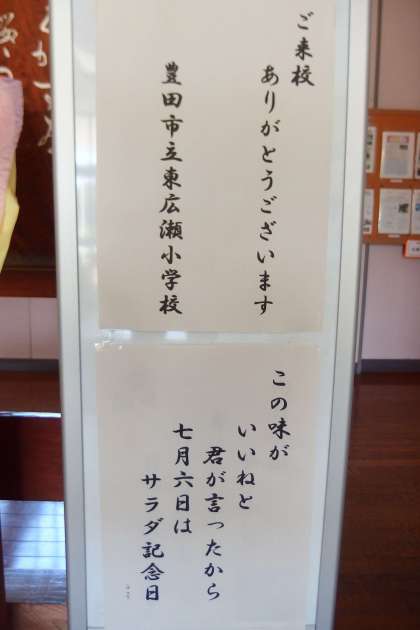 ご来校
ありがとうございます
豊田市立東広瀬小学校
この味が
いいねと
君が言ったから
七月六日は
サラダ記念日